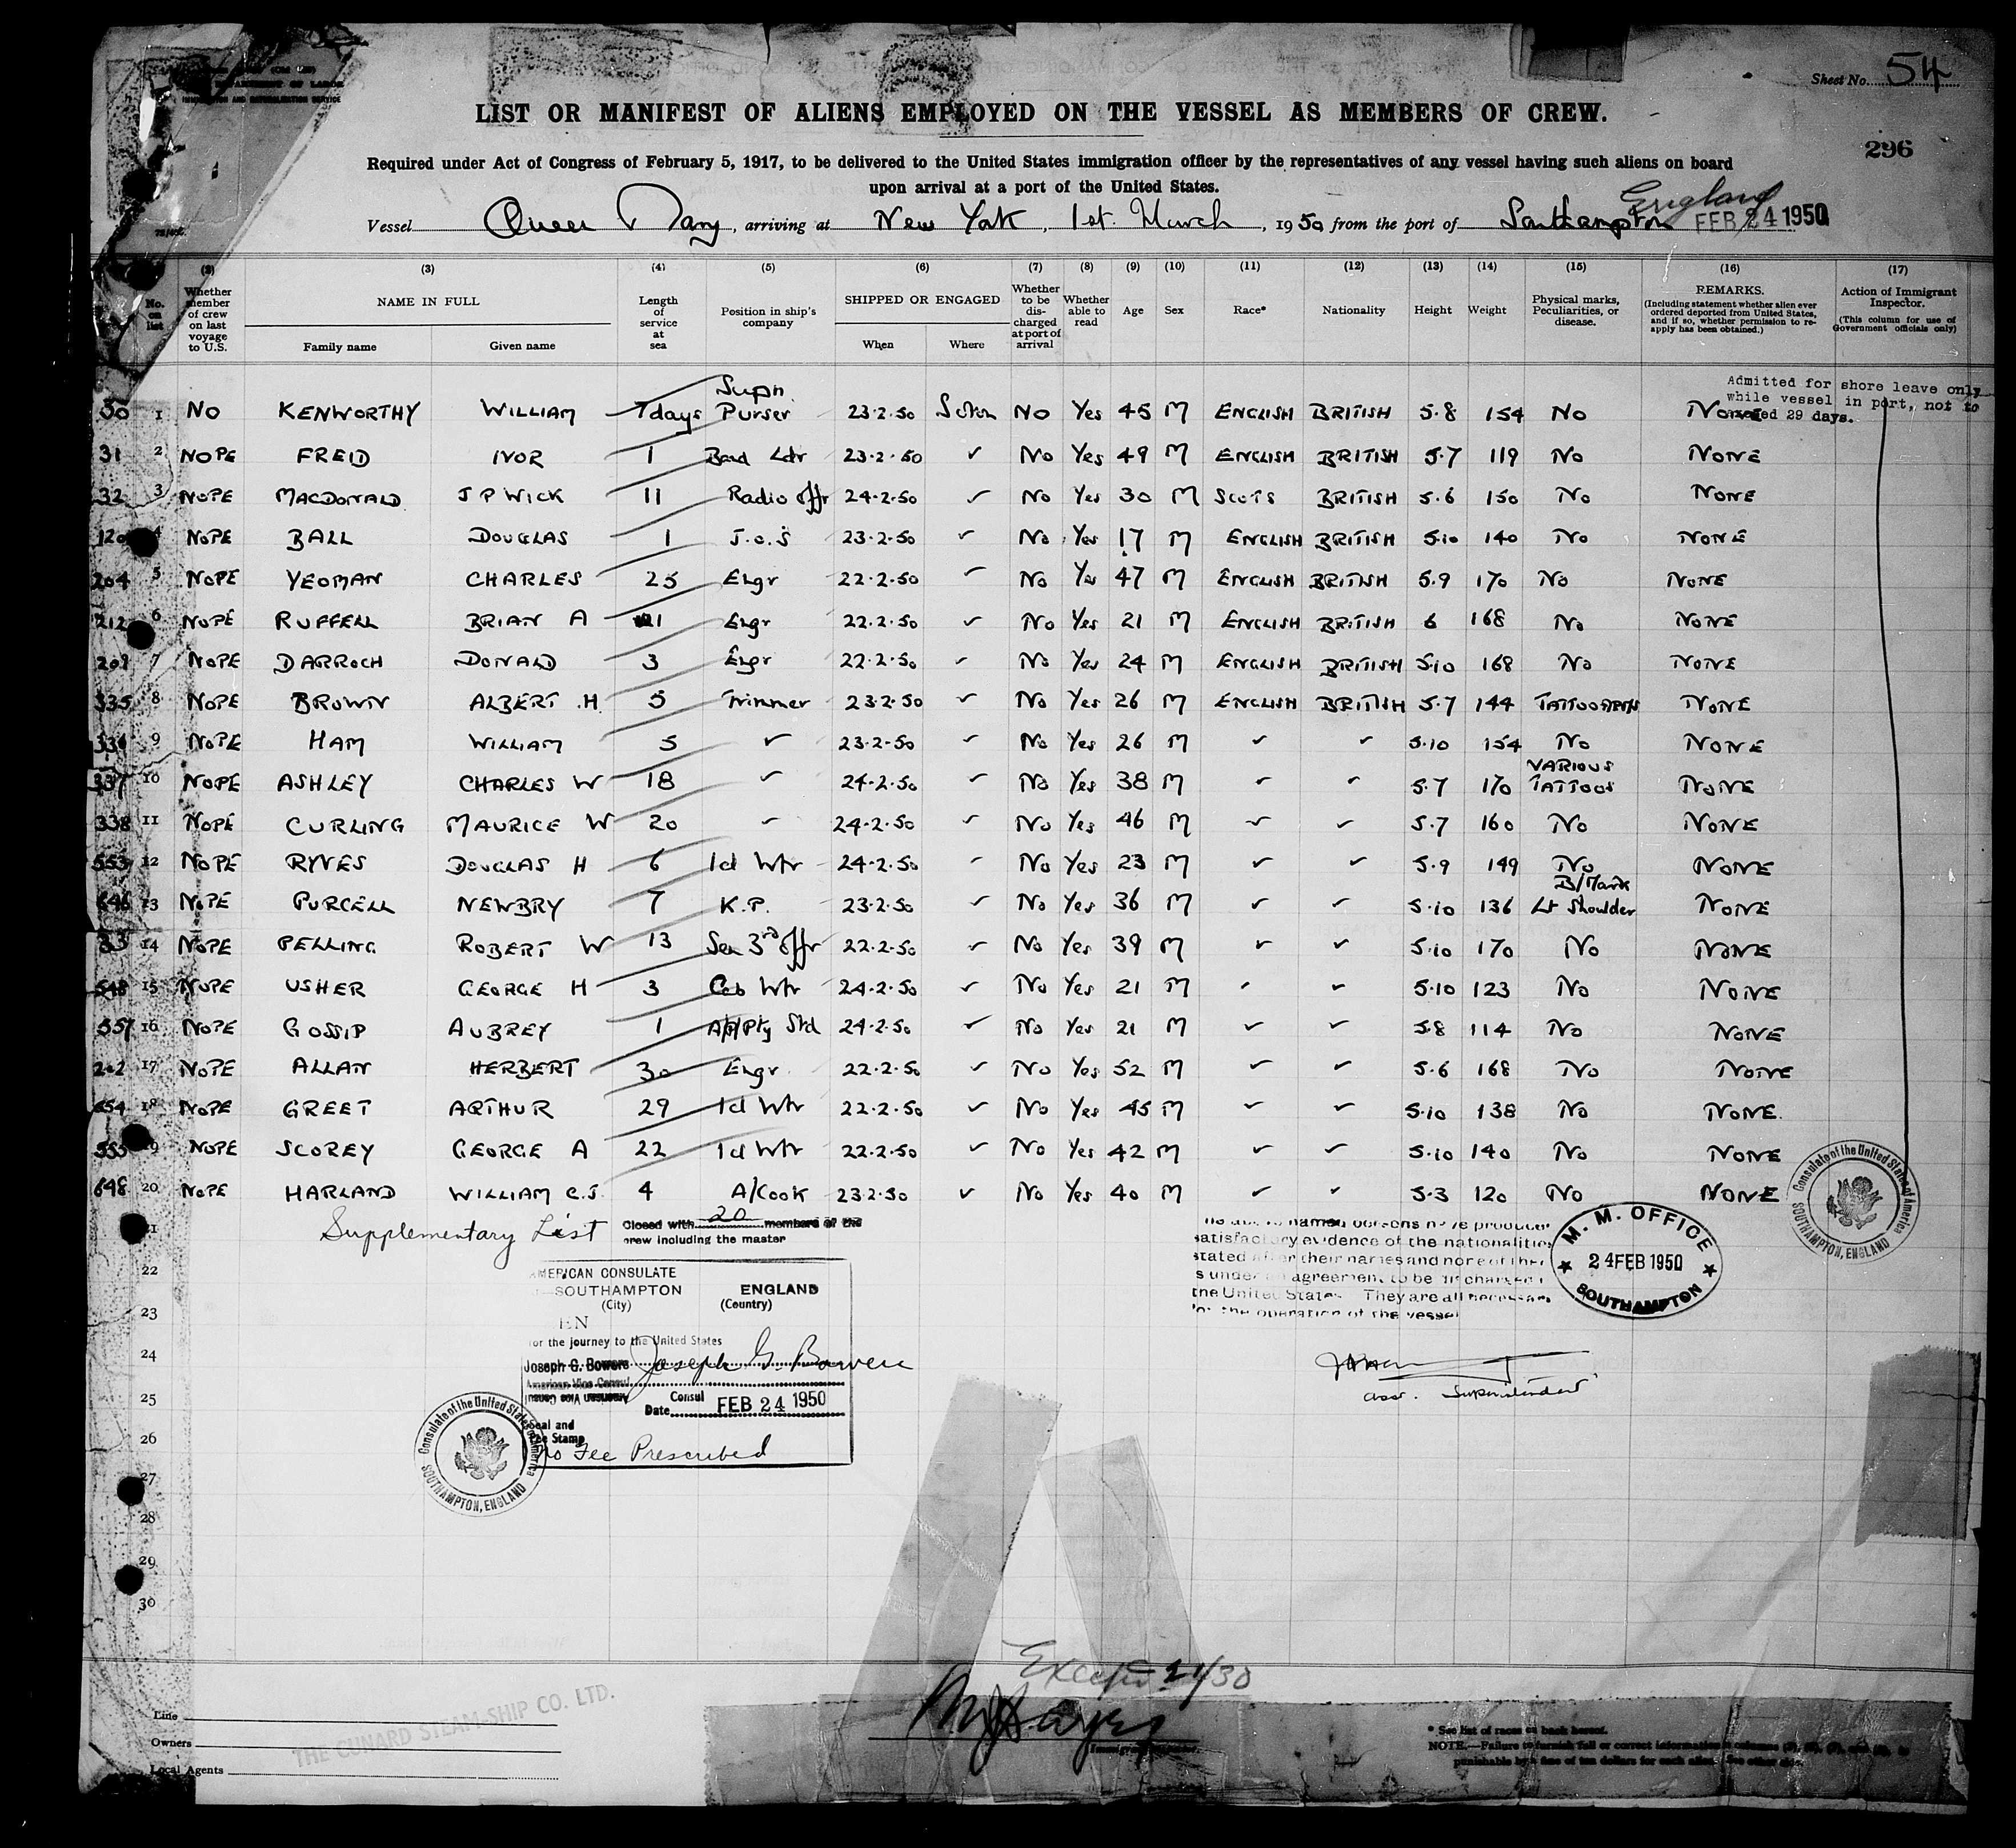 Sheet No. 54
IMMIGRATION AND NATURALIZATION SERVICE
LIST OR MANIFEST OF ALIENS EMPLOYED ON THE VESSEL AS MEMBERS OF CREW.
296
Required under Act of Congress of February 5, 1917, to be delivered to the United States immigration officer by the representatives of any vessel having such aliens on board
upon arrival at a port of the United States.
England
Vessel Queen Mary, arriving at New York, 1st. March, 1950 from the port of Southampton FEB 24 1950
(2) (3) (4) (5) (6) (7) (8) (9) (10) (11) (12) (13) (14) (15) (16) (17)
No. on list Whether member of crew on last voyage to U.S. NAME IN FULL Family name Given name Length of service at sea Position in ship's company SHIPPED OR ENGAGED When Where Whether to be discharged at port of arrival Whether able to read Age Sex Race* Nationality Height Weight Physical marks, Peculiarities, or disease. REMARKS. (Including statement whether alien ever ordered deported from United States, and if so, whether permission to re-apply has been obtained.) Action of Immigrant Inspector. (This column for use of Government officials only)
Admitted for shore leave only
while vessel in port, not to
exceed 29 days.
Supn.
30 1 NO KENWORTHY WILLIAM 7days Purser 23.2.50 Soton No Yes 45 M ENGLISH BRITISH 5.8 154 No NONE
31 2 NOPE FREID IVOR 1 Band Ldr 23.2.50 ✓ No Yes 49 M ENGLISH BRITISH 5.7 119 No NONE
32 3 NOPE MACDONALD J P WICK 11 Radio Offr 24.2.50 ✓ No Yes 30 M SCOTS BRITISH 5.6 150 No NONE
120 4 NOPE BALL DOUGLAS 1 J.O.S 23.2.50 ✓ No Yes 17 M ENGLISH BRITISH 5.10 140 No NONE
204 5 NOPE YEOMAN CHARLES 25 Engr 22.2.50 ✓ No Yes 47 M ENGLISH BRITISH 5.9 170 No NONE
212 6 NOPE RUFFELL BRIAN A 1 Engr 22.2.50 ✓ No Yes 21 M ENGLISH BRITISH 6 168 No NONE
7 NOPE DARROCH DONALD 3 Engr 22.2.50 ✓ No Yes 24 M ENGLISH BRITISH 5.10 168 No NONE
335 8 NOPE BROWN ALBERT .H. 5 Trimmer 23.2.50 ✓ No Yes 26 M ENGLISH BRITISH 5.7 144 TATTOO ARMS NONE
336 9 NOPE HAM WILLIAM 5 ✓ 23.2.50 ✓ No Yes 26 M ✓ ✓ 5.10 154 No NONE
337 10 NOPE ASHLEY CHARLES W 18 ✓ 24.2.50 ✓ No Yes 38 M ✓ ✓ 5.7 170 VARIOUS TATTOOS NONE
338 11 NOPE CURLING MAURICE W 20 ✓ 24.2.50 ✓ No Yes 46 M ✓ ✓ 5.7 160 No NONE
553 12 NOPE RYVES DOUGLAS H 6 1cl Wtr 24.2.50 ✓ No Yes 23 M ✓ ✓ 5.9 149 No NONE
646 13 NOPE PURCELL NEWBRY 7 K.P. 23.2.50 ✓ No Yes 36 M ✓ ✓ 5.10 136 B/Mark Lt Shoulder NONE
33 14 NOPE PELLING ROBERT W 13 Sen 3rd Offr 22.2.50 ✓ No Yes 39 M ✓ ✓ 5.10 170 No NONE
548 15 NOPE USHER GEORGE H 3 Wtr 24.2.50 ✓ No Yes 21 M ✓ ✓ 5.10 123 No NONE
557 16 NOPE GOSSIP AUBREY 1 Std 24.2.50 ✓ No Yes 21 M ✓ ✓ 5.8 114 No NONE
202 17 NOPE ALLAN HERBERT 30 Engr 22.2.50 ✓ No Yes 52 M ✓ ✓ 5.6 168 No NONE
554 18 NOPE GREET ARTHUR 29 1cl Wtr 22.2.50 ✓ No Yes 45 M ✓ ✓ 5.10 138 No NONE.
555 19 NOPE SCOREY GEORGE A 22 1cl Wtr 22.2.50 ✓ No Yes 42 M ✓ ✓ 5.10 140 No NONE
648 20 NOPE HARLAND WILLIAM C.J. 4 A/Cook 23.2.50 ✓ No Yes 40 M ✓ ✓ 5.3 120 No NONE
21 Supplementary List Closed with 20 members of the
crew including the master
named persons have produced
satisfactory evidence of the nationalities
stated after their names and none of them
is under an agreement to be discharged in
the United States They are all necessary
for the operation of the vessel
M. M. OFFICE
24 FEB 1950
SOUTHAMPTON
Consulate of the United States of America
SOUTHAMPTON, ENGLAND
AMERICAN CONSULATE
SOUTHAMPTON ENGLAND
(City) (Country)
for the journey to the United States
Joseph G. Bowers Joseph G. Bowers
American Vice Consul
Consul
Date FEB 24 1950
Seal and
Fee Stamp
No Fee Prescribed
Consulate of the United States of America
SOUTHAMPTON, ENGLAND
Asst. Superintendent
22
23
24
25
26
27
28
29
30
Except 21/30
Line
Owners
Local Agents
THE CUNARD STEAM-SHIP CO. LTD.
* See list of races on back hereof.
NOTE.—Failure to furnish full or correct information
punishable by a fine of ten dollars for each alien. See other side.